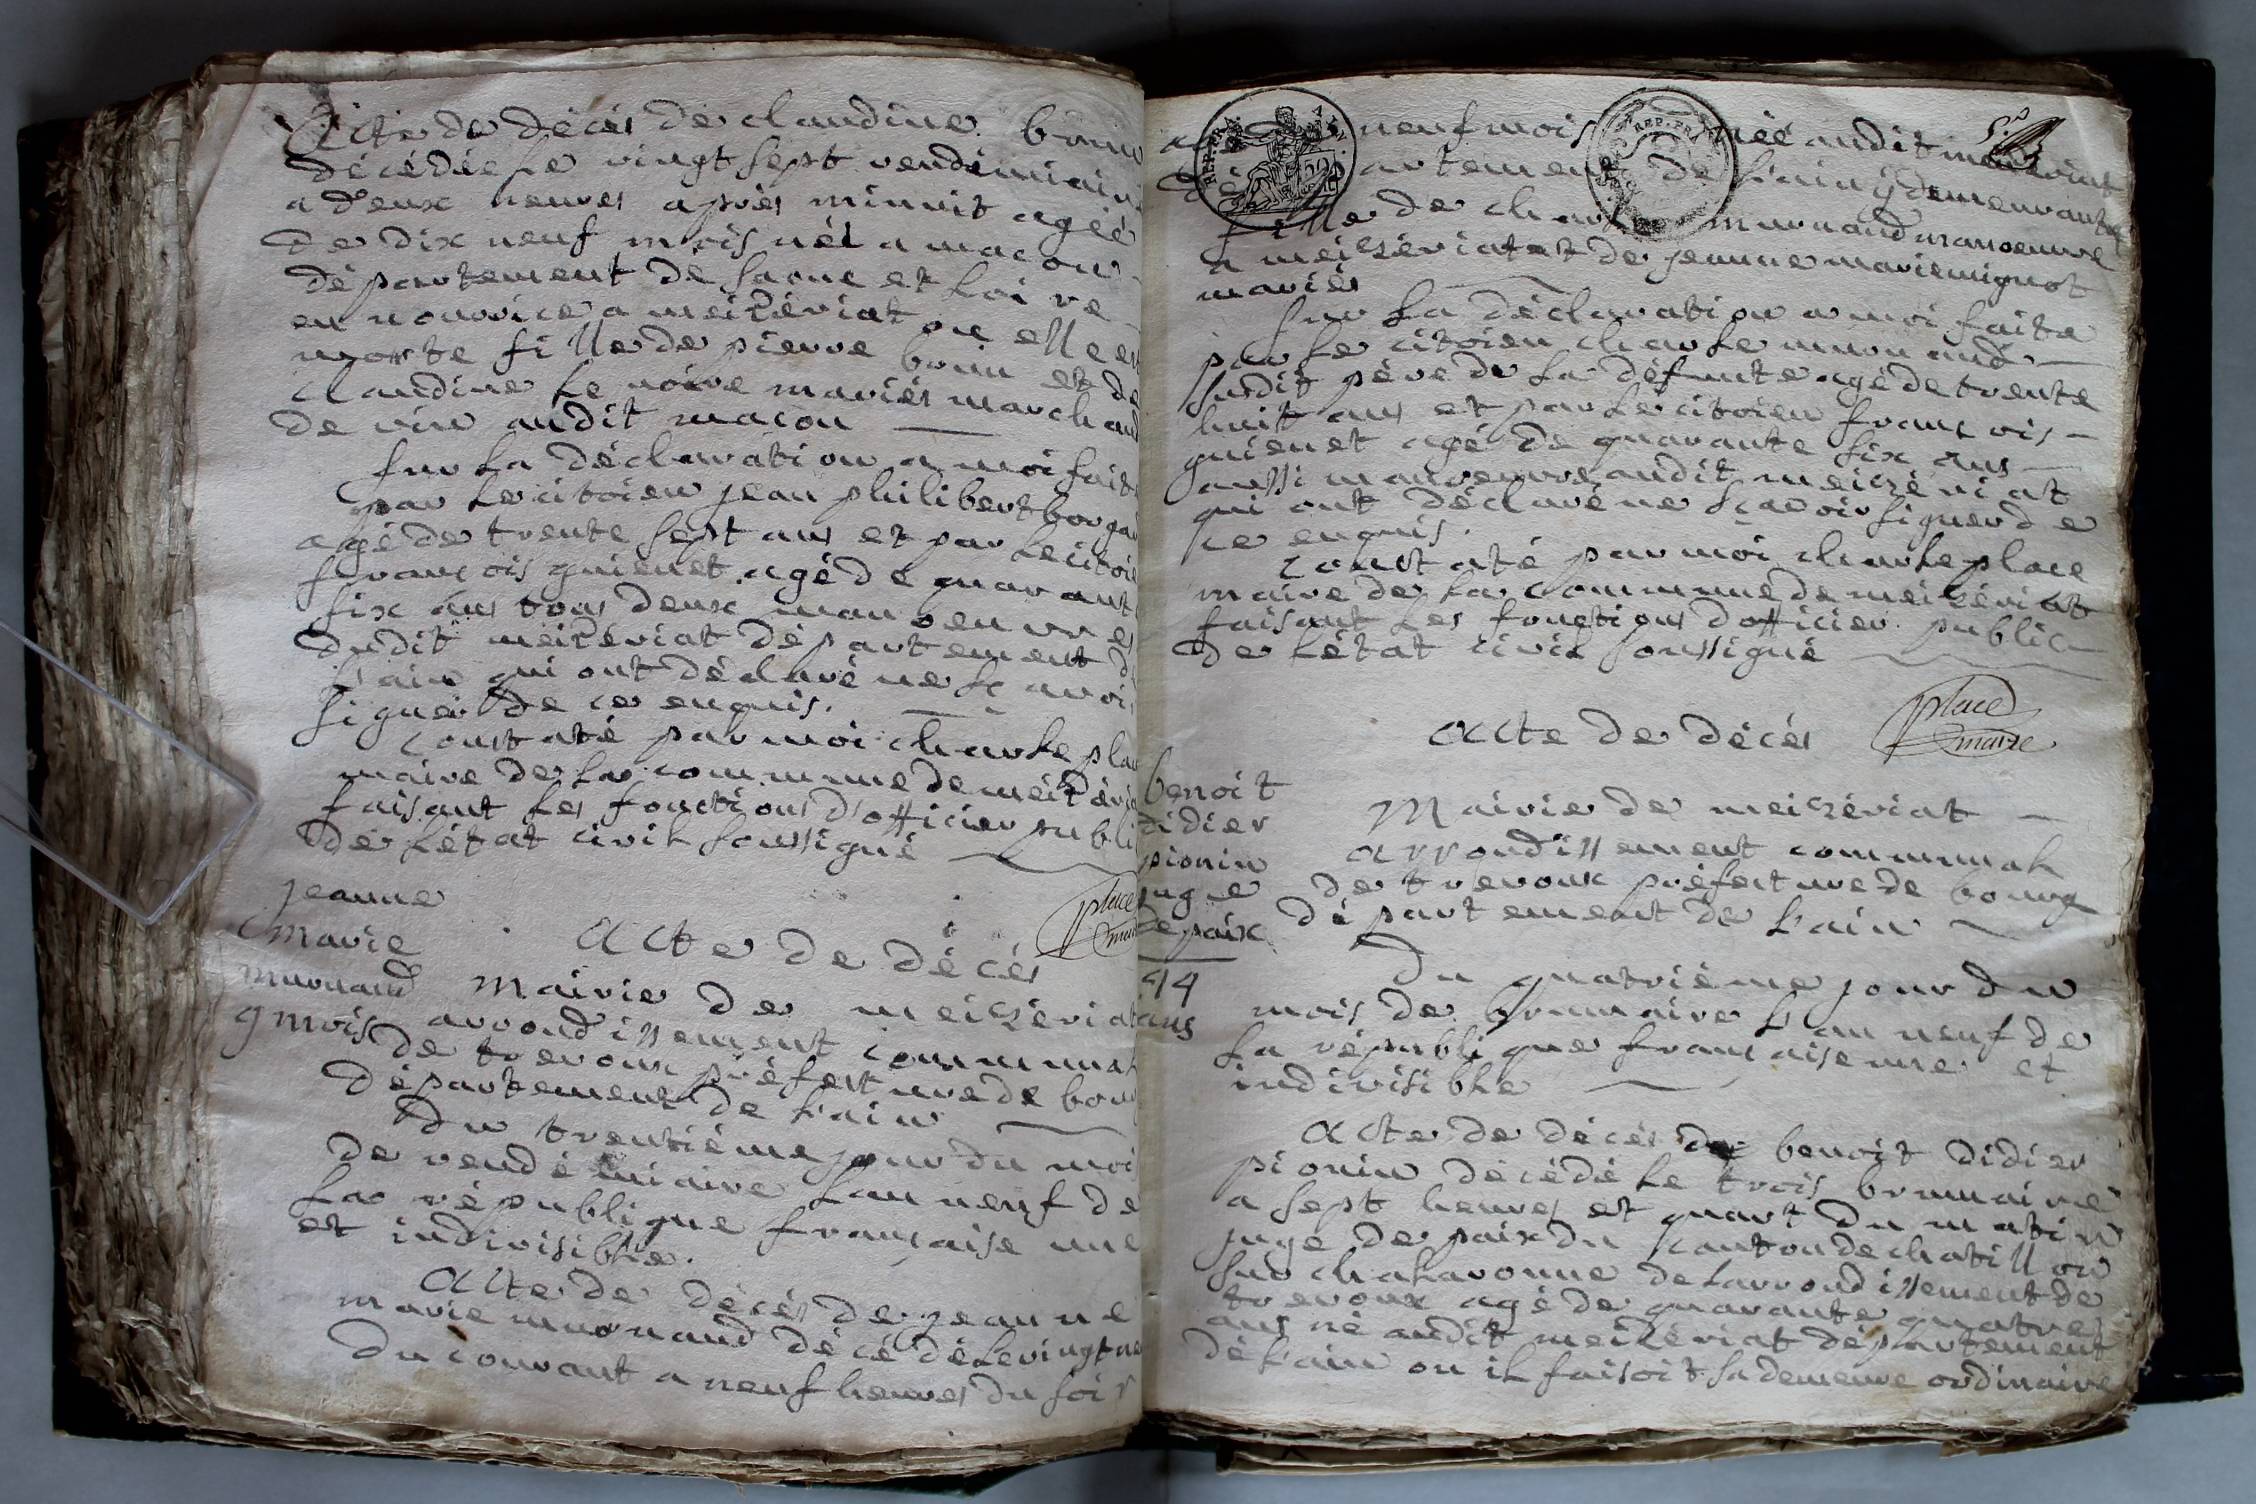 Acte de décés de claudine brun
décédée le vingt sept vendémiair
a deux heures après minuit agéé
de dix neuf mois néé a macon
département de saone et Loire
en nourice a meizériat ou elle est
morte fille de pierre brun et de
claudine Le noire mariés marchand
de vin audit macon
sur La déclaration a moi faite
par Le citoien jean philibert borga
agé de trente sept ans et par Le citoie
françois guienet agé de quarant
six ans tous deux manoeuvres
dudit meizériat département d
L'ain qui ont déclaré ne sçavoi
signer de ce enquis.
constaté par moi charle pla
maire de La commune de meizéria
faisant Les fonctions d'officier publi
de L'état civil soussigné
place
mai
jeanne
marie
murnand
9 mois
Acte de décés
Mairie de meizériat
arrondissement communal
de trevoux préfecture de bour
département de L'ain
Du trentième jour du moi
de vendémiaire L'an neuf de
La république française une
et indivisible.
Acte de décés de jeanne
marie murnand décédé Le vingt ne
du courant a neuf heures du soir
neuf mois néé audit meizériat
département de L'ain y demeurante
fille de charle murnand manoeuvre
a meizériat et de jeanne marie mignot
mariés
sur La déclaration a moi faite
par Le citoien charle murnand
susdit père de La défunte agé de trente
huit ans et par Le citoien françois
guienet agé de quarante six ans
aussi manoeuvre audit meizériat
qui ont déclaré ne sçavoir signer de
ce enquis.
constaté par moi charle place
maire de La commune de meizériat
faisant Les fonctions d'officier public
de L'état civil soussigné
place
maire
Acte de décés
benoit
didier
pionin
juge
de paix
44
ans
Mairie de meizériat
arrondissement communal
de trevoux préfecture de bourg
département de L'ain
Du quatrième jour du
mois de brumaire L'an neuf de
La république française une et
indivisible
Acte de décés de benoit didier
pionin décédé Le trois brumaire
a sept heures et quart du matin
juge de paix du canton de chatillon
sur chalaronne de L'arrondissement de
trevoux agé de quarante quatre
ans né audit meizériat département
de L'ain ou il faisoit sa demeure ordinaire